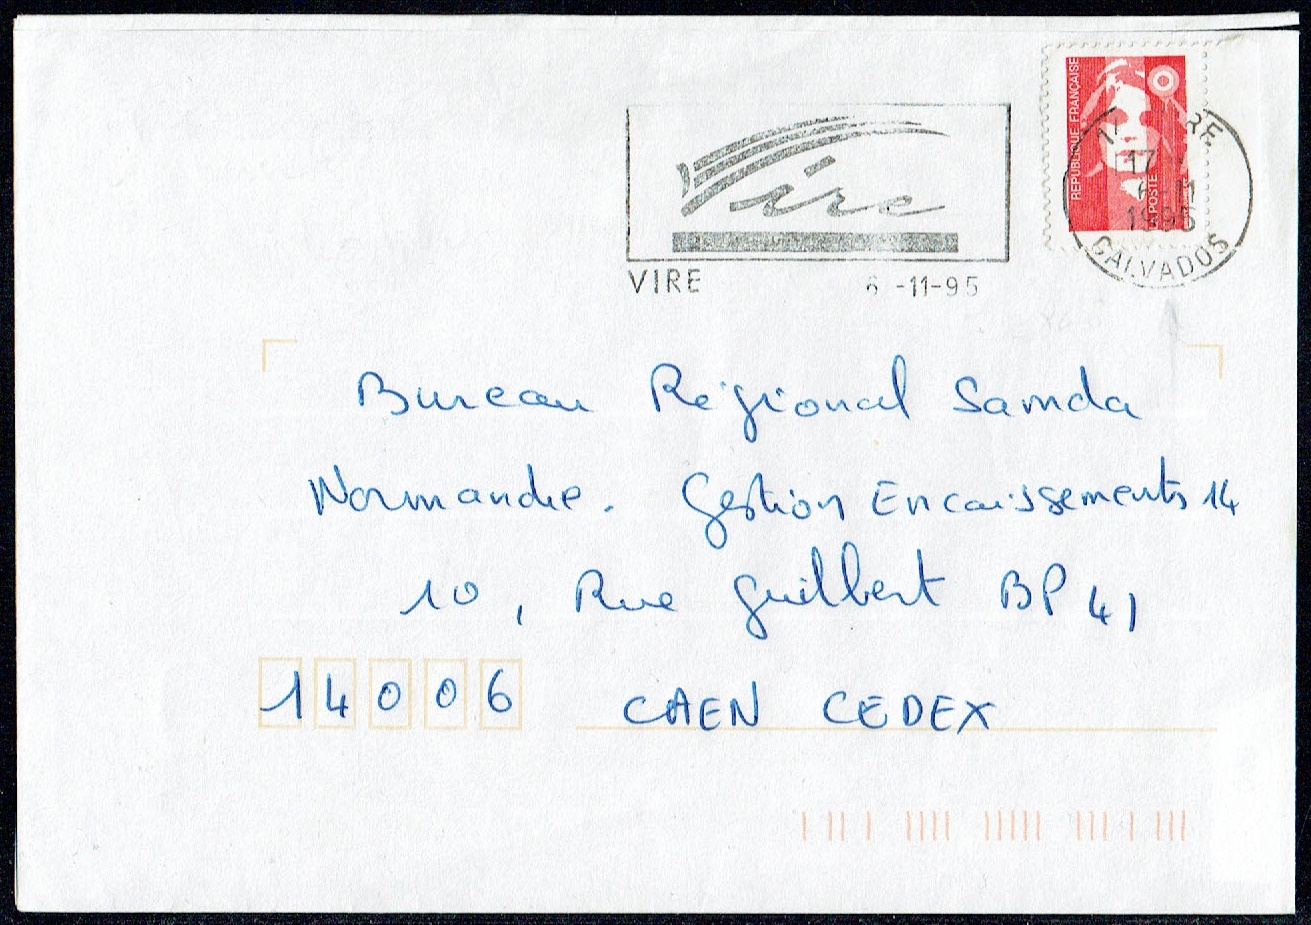 RÉPUBLIQUE FRANÇAISE
LA POSTE
Vire
VIRE 6 -11-95
17
6-11
1995
CALVADOS
Bureau Régional Samda
Normandie. Gestion Encaissements 14
10, Rue Guilbert BP 41
14006 CAEN CEDEX